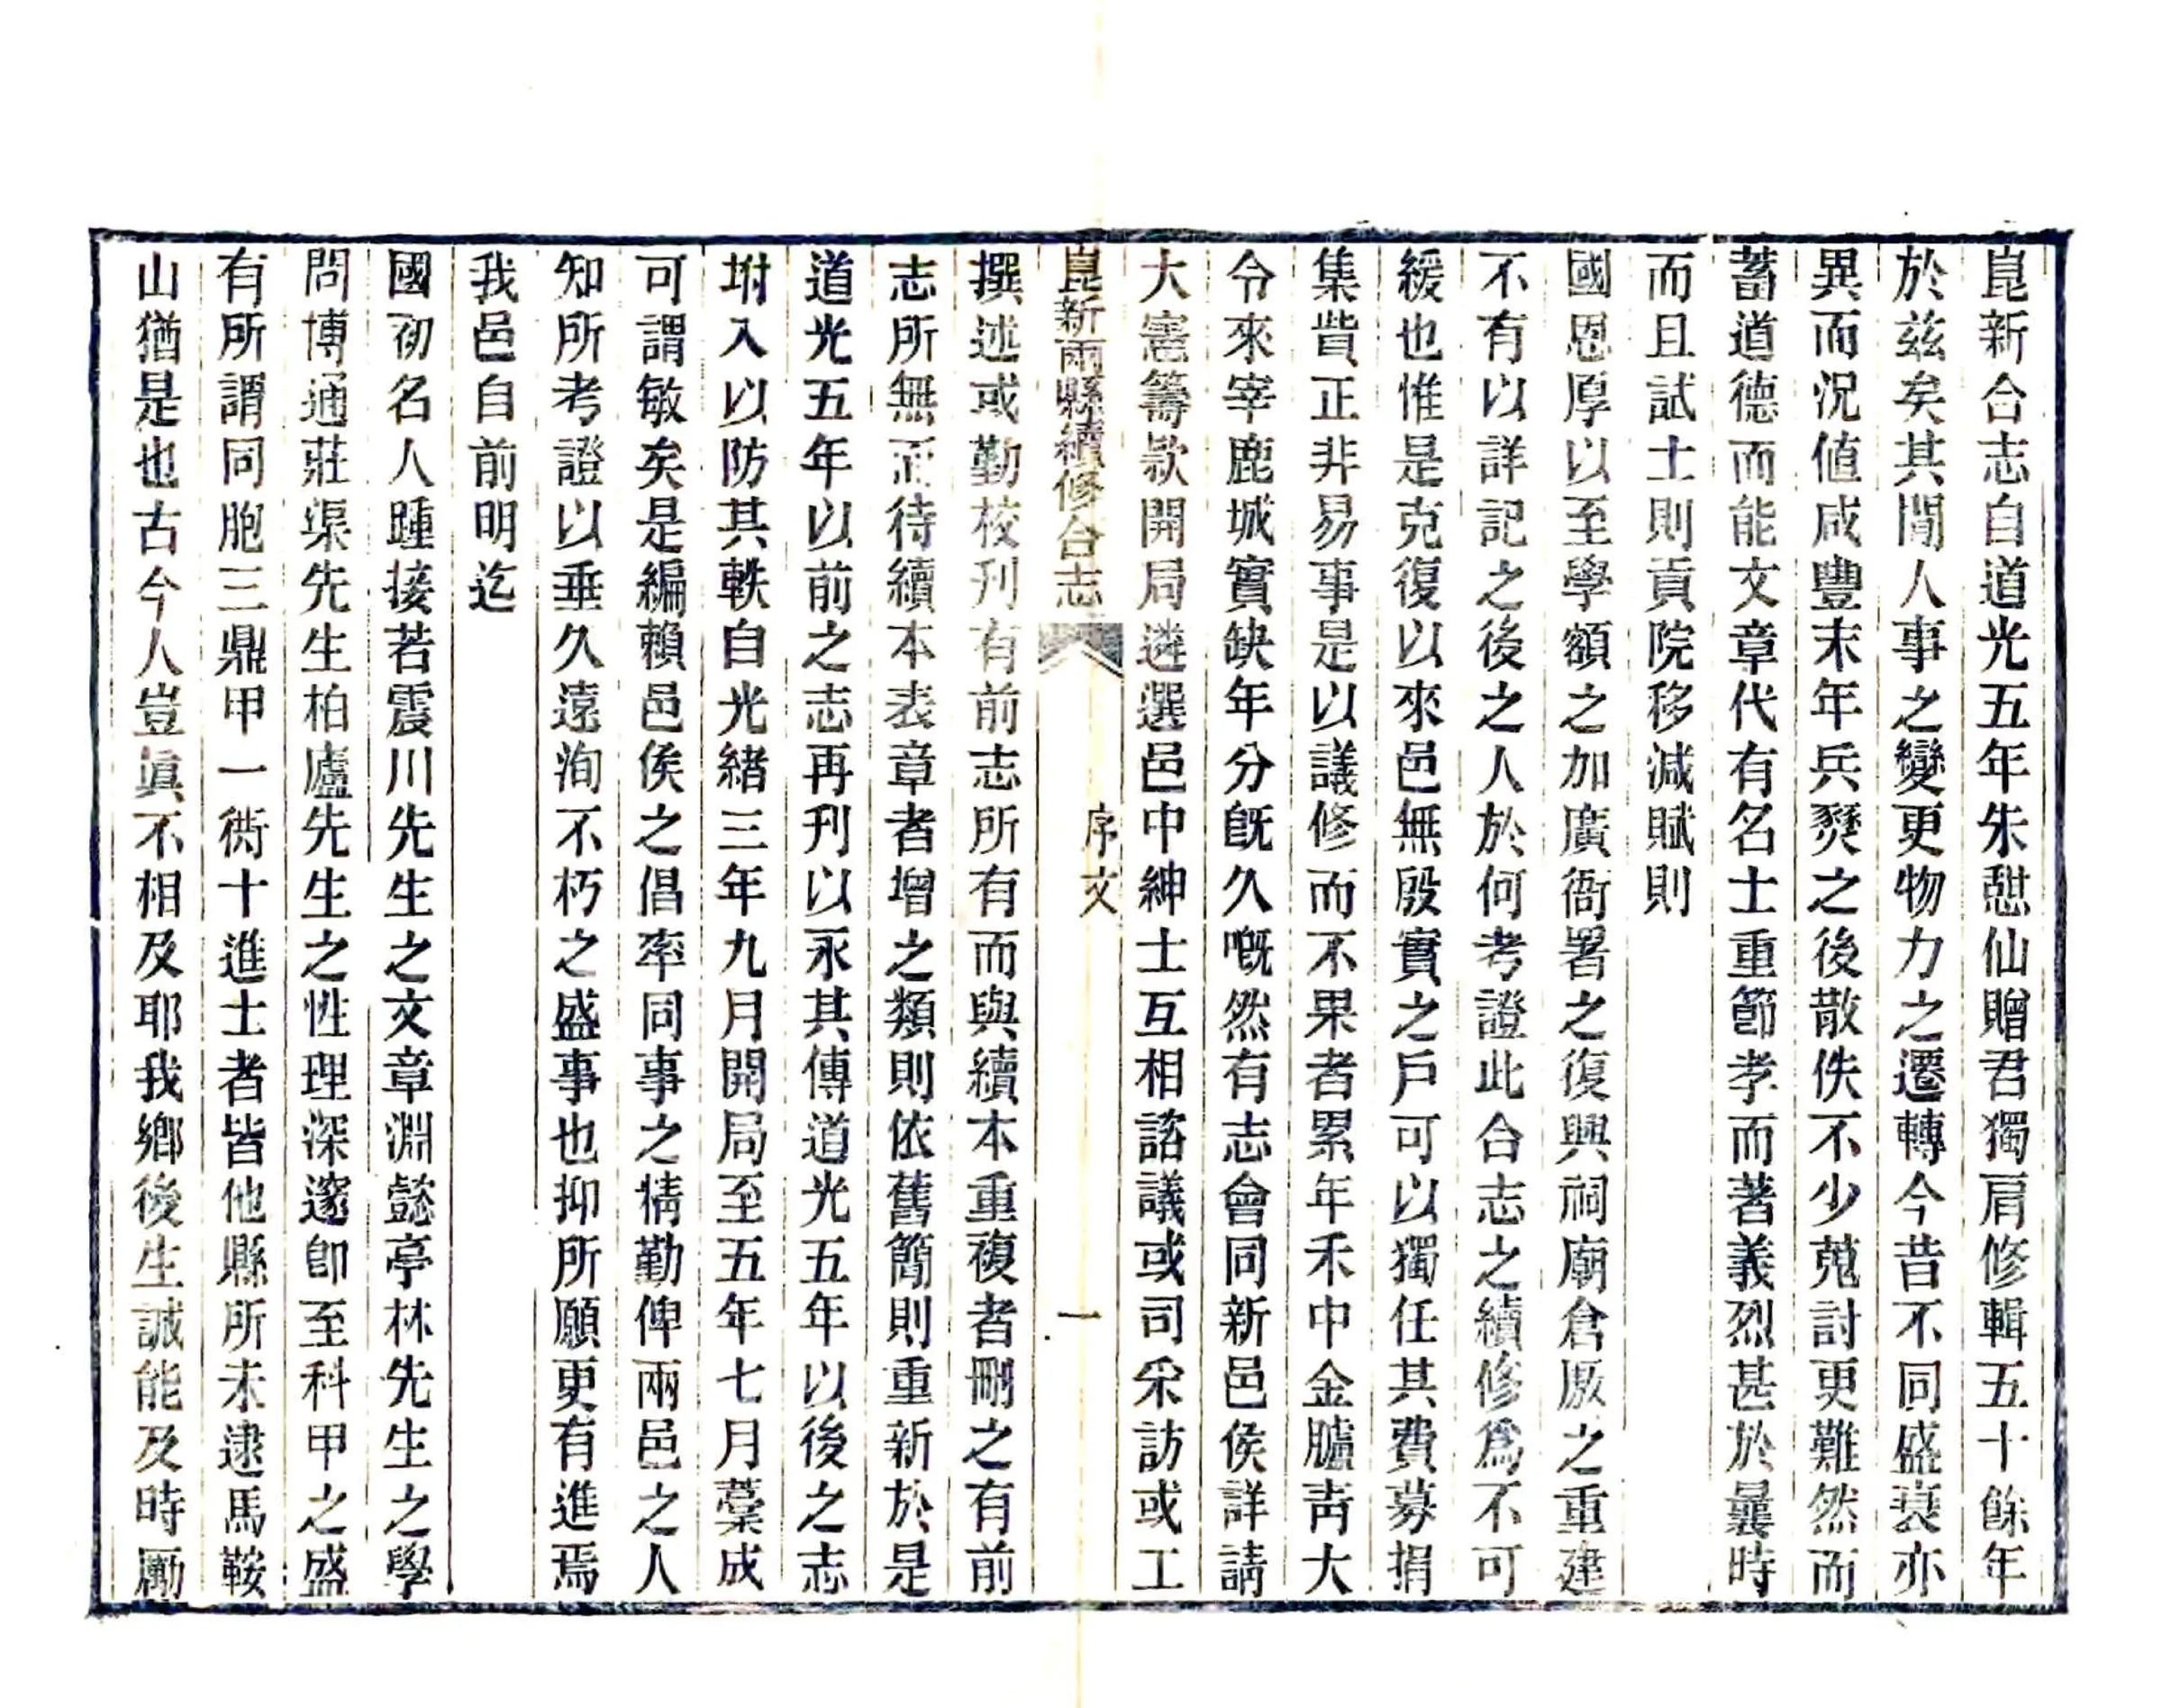 崑新合志自道光五年朱憇仙贈君獨肩修輯五十餘年
於兹矣其閒人事之變更物力之遷轉今昔不同盛衰亦
異而況値咸豐末年兵燹之後散佚不少蒐討更難然而
蓄道德而能文章代有名士重節孝而著義烈甚於曩時
而且試士則貢院移減賦則
國恩厚以至學額之加廣衙署之復興祠廟倉厫之重建
不有以詳記之後之人於何考證此合志之續修爲不可
緩也惟是克復以來邑無殷實之戶可以獨任其費募捐
集貲正非易事是以議修而不果者累年禾中金臚靑大
令來宰鹿城實缺年分旣久嘅然有志會同新邑侯詳請
大憲籌款開局遴選邑中紳士互相諮議或司采訪或工
崑新兩縣續修合志
序文
一
撰述或勤校刋有前志所有而與續本重複者刪之有前
志所無而待續本表章者增之類則依舊簡則重新於是
道光五年以前之志再刋以永其傳道光五年以後之志
坿入以防其軼自光緒三年九月開局至五年七月藁成
可謂敏矣是編賴邑侯之倡率同事之精勤俾兩邑之人
知所考證以垂久遠洵不朽之盛事也抑所願更有進焉
我邑自前明迄
國初名人踵接若震川先生之文章淵懿亭林先生之學
問博通莊渠先生柏廬先生之性理深邃卽至科甲之盛
有所謂同胞三鼎甲一衖十進士者皆他縣所未逮馬鞍
山猶是也古今人豈眞不相及耶我鄕後生誠能及時勵